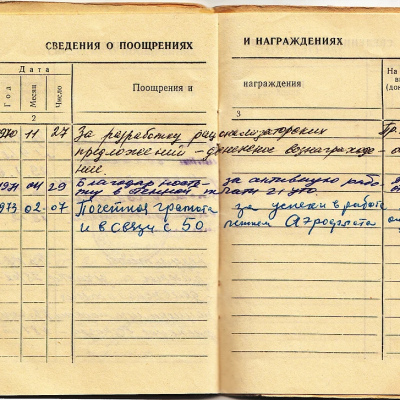 СВЕДЕНИЯ О ПООЩРЕНИЯХ И НАГРАЖДЕНИЯХ
Дата
Год Месяц Число
Поощрения и награждения
На
(до
2 3
1970 11 27 За разработку рационализаторских Пр.
предложений - денежное вознагражде-
ние.
1971 04 29 Благодарность за активную рабо-
ту в
1973 02 07 Почетная грамота за успехи в работе
и в связи с 50 летием Аэрофлота